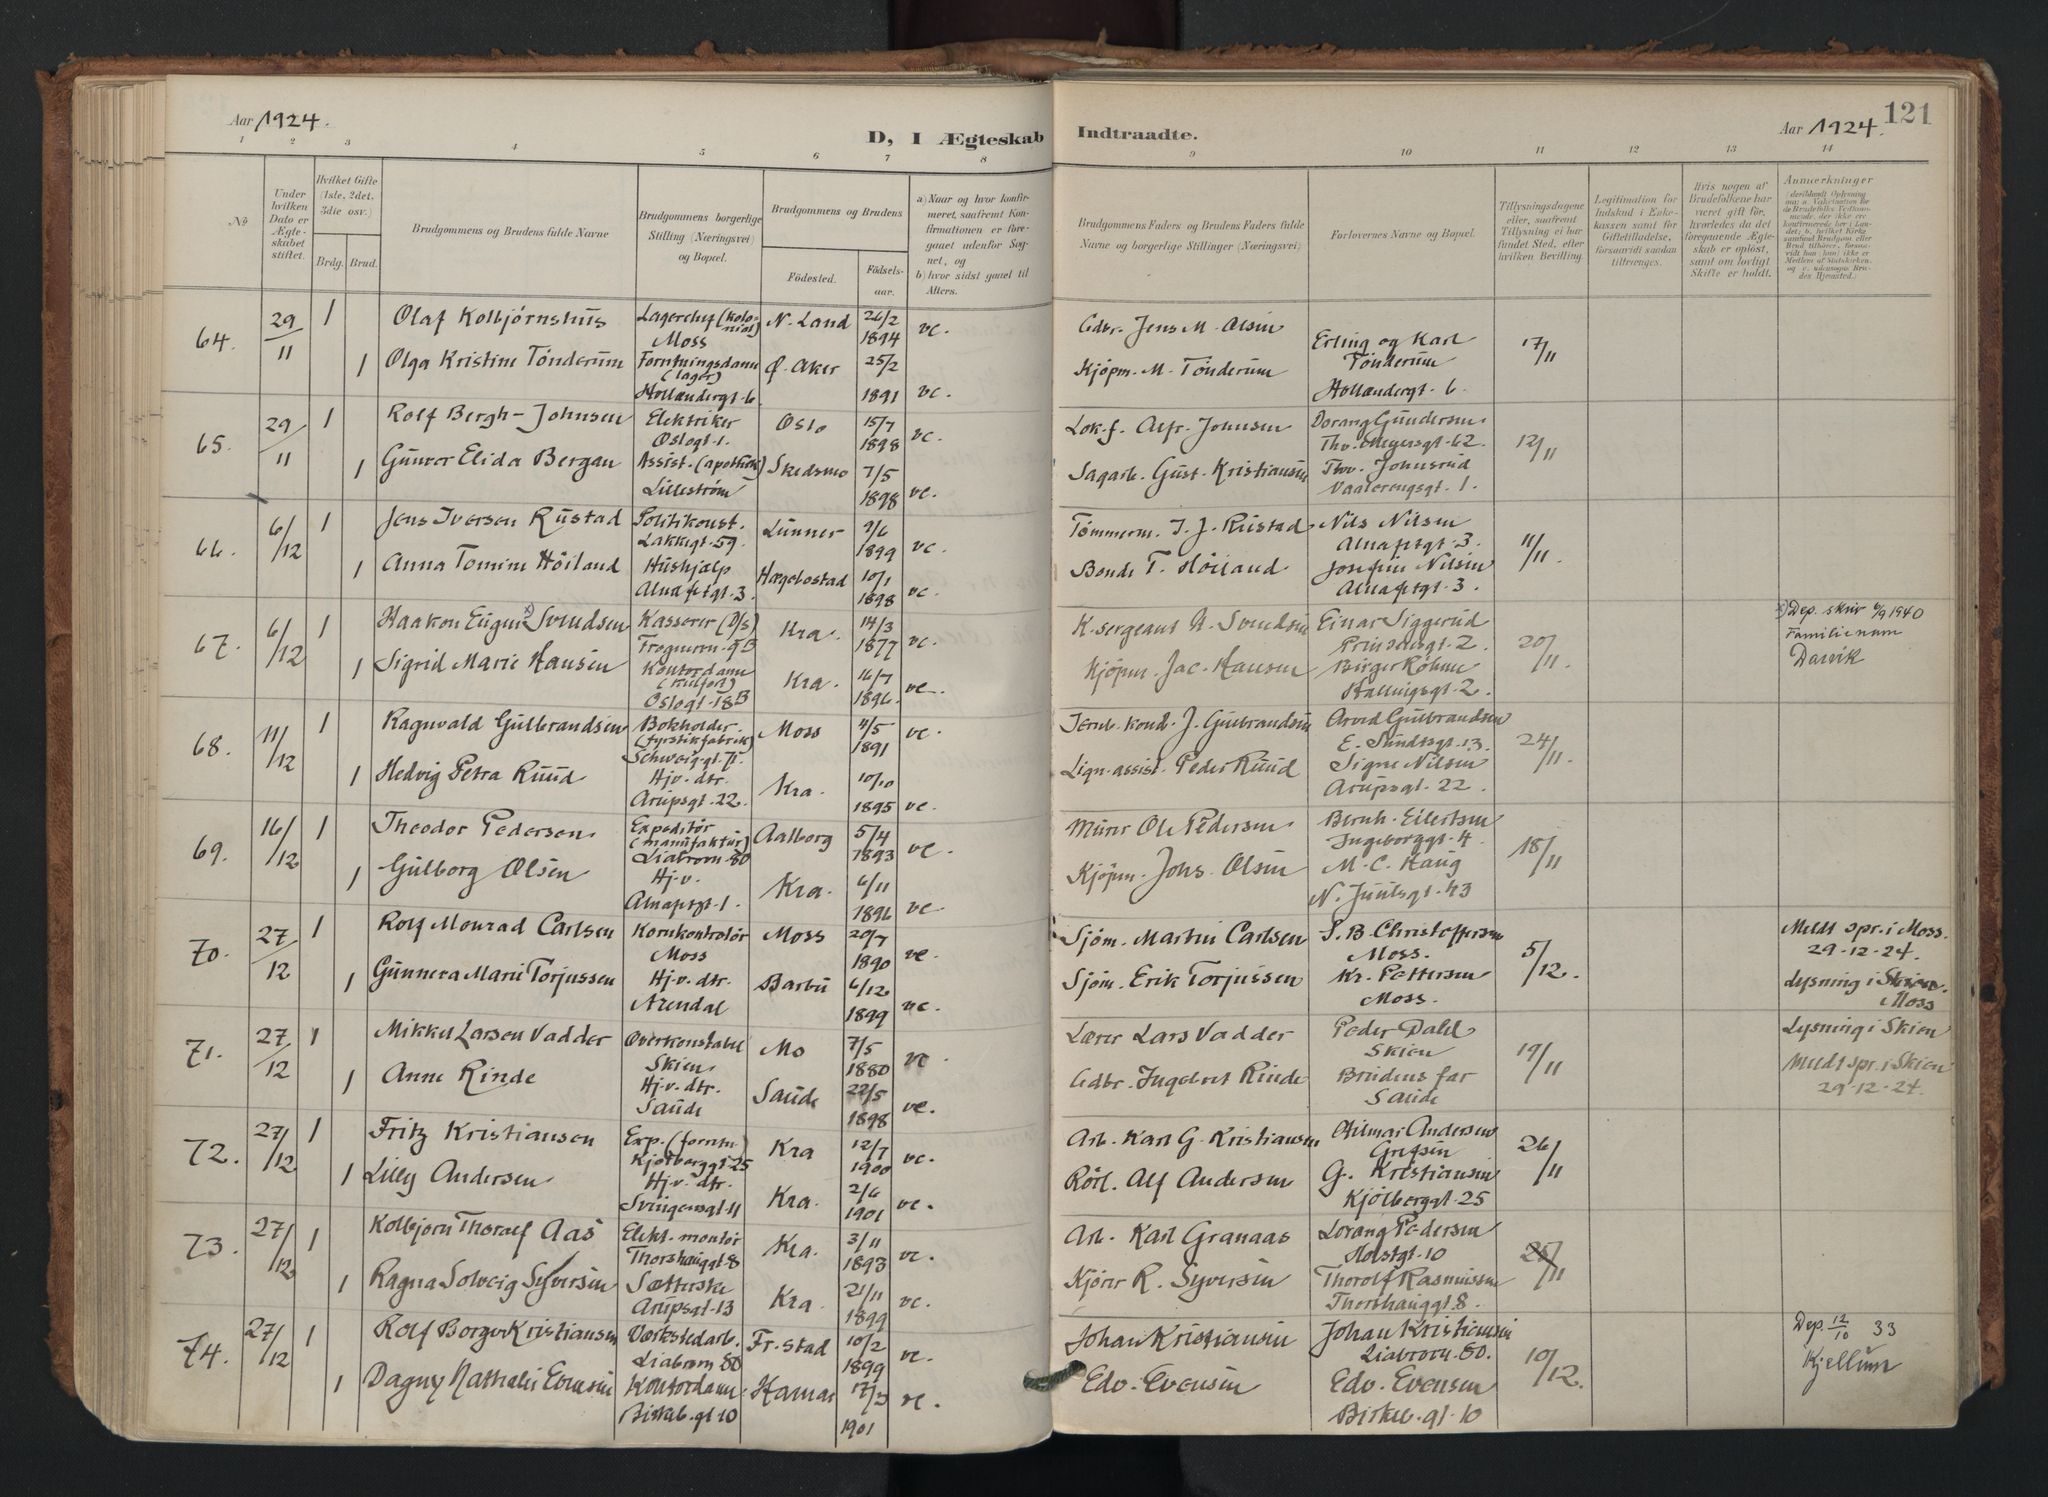 Aar 1924.
D, I Ægteskab Indtraadte.
Aar 1924.
121
1 2 3 4 5 6 7 8 9 10 11 12 13 14
No
Under hvilken Dato er Ægteskabet stiftet.
Hvilket Gifte (1ste, 2det, 3die osv.)
Brdg. Brud.
Brudgommens og Brudens fulde Navne
Brudgommens borgerlige Stilling (Næringsvei) og Bopæl.
Brudgommens og Brudens
Fødested.
Fødselsaar.
a) Naar og hvor konfirmeret, saafremt Konfirmationen er foregaaet udenfor Sognet, og
b) hvor sidst gaaet til Alters.
Brudgommens Faders og Brudens Faders fulde Navne og borgerlige Stillinger (Næringsvei)
Forlovernes Navne og Bopæl.
Tillysningsdagene eller, saafremt Tillysning ei har fundet Sted, efter hvilken Bevilling.
Legitimation for Indskud i Enkekassen samt for Giftetilladelse, forsaavidt saadan tiltrænges.
Hvis nogen af Brudefolkene har været gift før, hvorledes da det foregaaende Ægteskab er opløst, samt om lovligt Skifte er holdt.
Anmerkninger
64. 29/11 1 Olaf Kolbjørnshus Lagerchef (kolonial) Moss N. Land 26/2 1894 vc. Gdbr. Jens M. Olsen Erling og Karl Tønderum Hollændergt. 6. 17/11
1 Olga Kristine Tønderum Forretningsdame (lager) Hollændergt. 6 Ø. Aker 25/2 1891 vc. Kjøpm. M. Tønderum
65. 29/11 1 Rolf Bergh-Johnsen Elektriker Oslogt. 1. Oslo 15/7 1898 vc. Lok.f. Alfr. Johnsen Gundersen Thv. Meyersgt. 62. 12/11
1 Gunvor Elida Bergan Assist. (apothek) Lillestrøm Skedsmo 7/5 1898 vc. Sagarb. Gust. Kristiansen Thv. Johnsrud Vaalerengsgt. 1.
66. 6/12 1 Jens Iversen Rustad Politikonst. Lakkegt. 59. Lunner 1899 vc. Tømmerm. I. J. Rustad Nils Nilsen Alnafetgt. 3. 11/11
1 Anna Tomine Höiland Hushjælp Alnafetgt. 3 Hægebostad 10/1 1898 vc. Bonde T. Höiland Josefine Nilsen Alnafetgt. 3
67. 6/12 1 Haakon Eugen x) Svendsen Kasserer (D/S) Frognerv. 9B Kra. 14/3 1877 vc. K. sergeant Svendsen Einar Siggerud Prinsensgt. 2. 20/11
x) Dep. skriv 6/9 1940
Familienavn
Darvik
1 Sigrid Marie Hansen Kontordame Oslogt. 18B Kra. 16/7 1896. vc. Kjøpm. Jac. Hansen Birger Röhne Hallingsgt. 2.
68. 11/12 1 Ragnvald Gulbrandsen Bokholder (fyrstikfabrik) Schweig.gt. 71. Moss 4/5 1891 vc. Jernb. kond. J. Gulbrandsen Arvid Gulbrandsen E. Sundtsgt. 13. 24/11.
1 Hedvig Petra Ruud Hj.v. dtr. Arupsgt. 22 Kra. 10/10 1895 vc. Lign.assist. Peder Ruud Signe Nilsen Arupsgt. 22
69. 16/12 1 Theodor Pedersen Expeditör (manufaktur) Liabrovn. 80 Aalborg 5/4 1893 vc. Murer Ole Pedersen Bernh. Eilertsen Ingeborggt. 4 18/11
1 Gulborg Olsen Hj.v. Alnafetgt. 1. Kra. 6/11 1896 vc. Kjøpm. Johs. Olsen M. C. Haug N. Juulsgt. 43
70. 27/12 1 Rolf Monrad Carlsen Kornkontrolör Moss Moss 20/7 1890 vc. Sjöm. Martin Carlsen S. B. Christoffersen Moss. 5/12.
Meldt spr. i Moss.
29-12-24.
Lysning i Skien.
Moss
1 Gunnera Marie Torjussen Hj.v. dtr. Arendal Barbu 6/12 1899 vc. Sjöm. Erik Torjussen Kr. Pettersen Moss.
71. 27/12 1 Mikkel Larsen Vadder Overkonstabel Skien Mo 7/5 1880 vc Lærer Lars Vadder Peder Dahl Skien 19/11
Lysning i Skien
Meldt spr. i Skien
29-12-24.
1 Anne Rinde Hj.v. dtr. Saude Saude 22/5 1898 vc. Gdbr. Ingebret Rinde Brudens far Saude
72. 27/12 1 Fritz Kristiansen Exp. (forretn.) Kjölberggt. 25 Kra 12/7 1900 vc. Arb. Karl G. Kristiansen Hilmar Andersen Grefsen 26/11
1 Lilly Andersen Hj.v. dtr. Svingensgt. 11 Kra. 2/6 1901 vc. Rörl. Alf Andersen G. Kristiansen Kjölberggt. 25
73. 27/12 1 Kolbjörn Thoralf Aas Elekt. montör Thorshauggt. 8 Kra. 3/11 1893 vc. Arb. Karl Granaas Lorang Pedersen Holstgt. 10 /11
1 Ragna Solveig Syversen Sætterske Arupsgt. 13 Kra. 21/11 1899 vc. Kjörer R. Syversen Thorolf Rasmussen Thorshauggt. 8.
74. 27/12 1 Rolf Borger Kristiansen Værkstedarb. Liabrovn. 80 Fr.stad 10/2 1899 vc. Johan Kristiansen Johan Kristiansen Liabrovn. 80. 10/12.
Dep. 12/10 33
Kjellum
1 Dagny Nathalie Evensen Kontordame Birkeb.gt. 10 Hamar 17/3 1901 vc. Edv. Evensen Edv. Evensen Birkeb.gt. 10